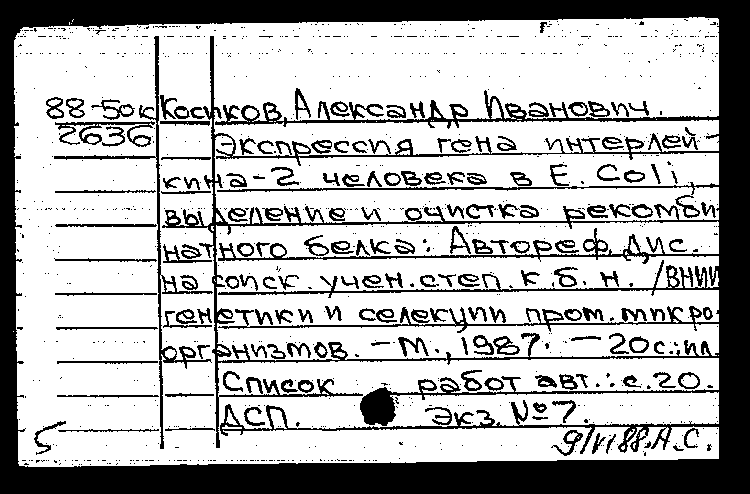 88-50к Косиков, Александр Иванович.
2636 Экспрессия гена интерлей-
кина-2 человека в E. Coli,
выделение и очистка рекомби
натного белка: Автореф. Дис.
на соиск. учен. степ. к. б. н. /ВНИИ
генетики и селекции пром. микро-
организмов. - М., 1987. - 20 с.: ил.
Список работ авт.: с. 20.
ДСП. Экз. № 7.
5 9/VI 88. А. С.